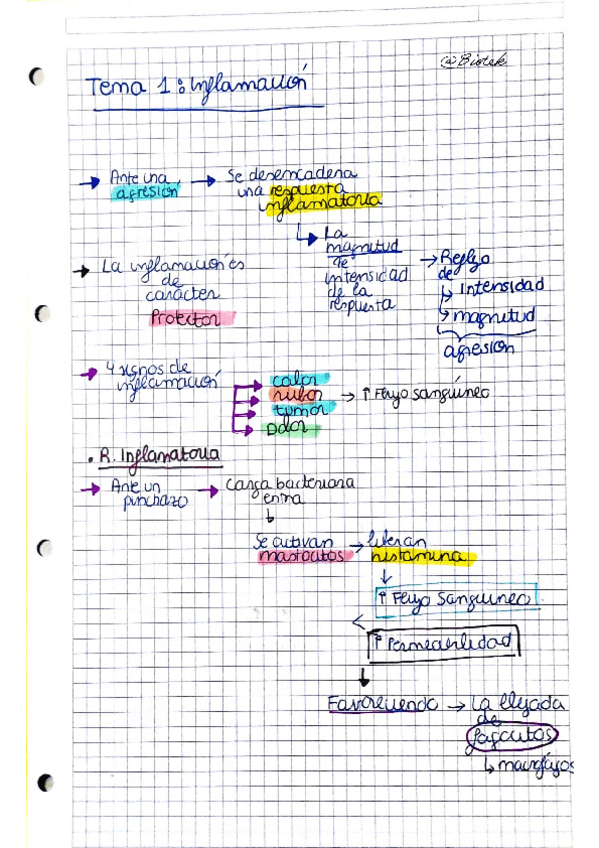 @Biotek
Tema 1: Inflamación
→ Ante una → Se desencadena
agresión una respuesta
inflamatoria
↳ La
magnitud
de
intensidad
de la
respuesta
→ Reflejo
de
↳ Intensidad
↳ magnitud
agresión
→ La inflamación es
de
carácter
Protector
→ 4 signos de
inflamación
→ calor
→ rubor
→ tumor
→ Dolor
→ ↑ Flujo sanguíneo
• R. Inflamatoria
→ Ante un → Carga bacteriana
pinchazo entra
↓
Se activan → liberan
mastocitos histamina
↓
↑ Flujo Sanguineo
<
↑ Permeabilidad
↓
Favoreciendo → La llegada
de
fagocitos
↳ macrófagos